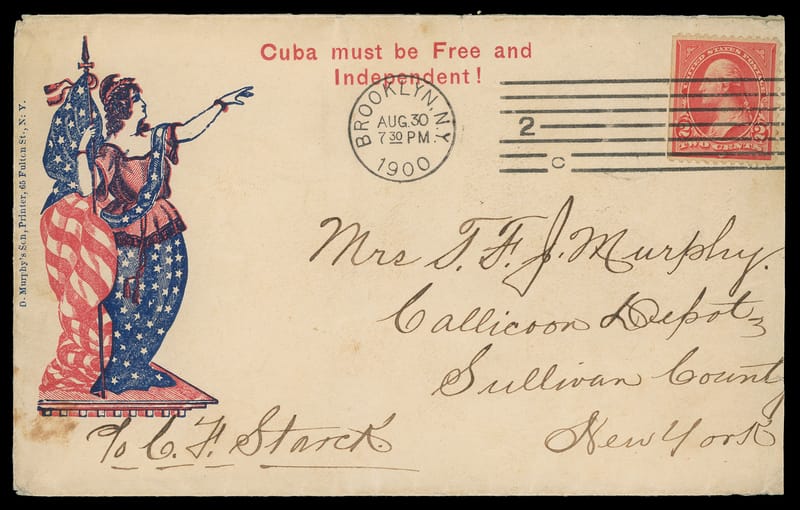 Cuba must be Free and
Independent!
D. Murphy's Son, Printer, 65 Fulton St., N. Y.
BROOKLYN, N.Y.
AUG. 30
7 30 PM
1900
2
C
UNITED STATES POSTAGE
2 2
TWO CENTS
Mrs T. F. J. Murphy.
Callicoon Depot
Sullivan County
New York
c/o C. F. Starck